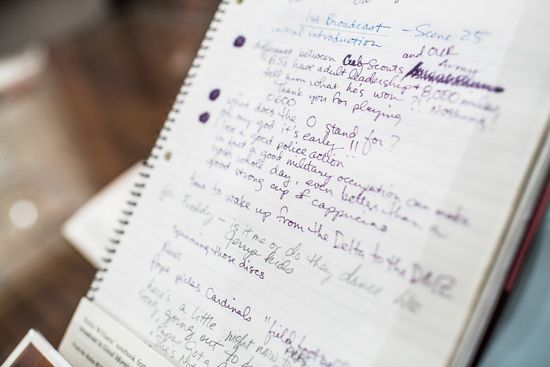 1st Broadcast - Scene 25
initial introduction
and OUR
Army
Difference between Cub Scouts
BSS have adult leadership + 8,000 miles
tell him what he's won ?! Nothing!
Thank you for playing
0600
what does the O stand for?
oh my god it's early!!
love a good police action
in fact a good military occupation can make
your whole day, even better than a
good strong cup of cappucino
Time to wake up from the Delta to the DMZ
Freddy - is it me or do they dance like
Jerry's kids
Spinning those discs
News
Pope picks Cardinals "field
here's a little right now
going out to
Spar Got a